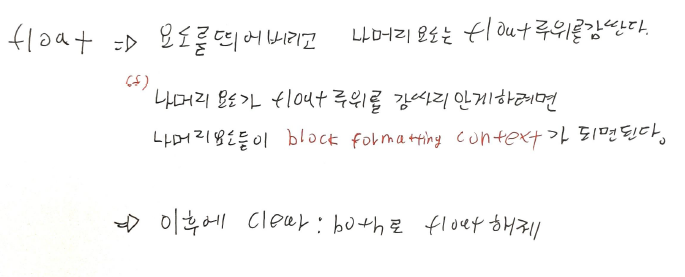 float => 요소를 띄어버리고 나머지 요소는 float 주위를 감싼다.
cf)
나머지 요소가 float 주위를 감싸지 않게 하려면
나머지 요소들이 block formatting context가 되면된다.
=> 이후에 clear : both로 float 해제